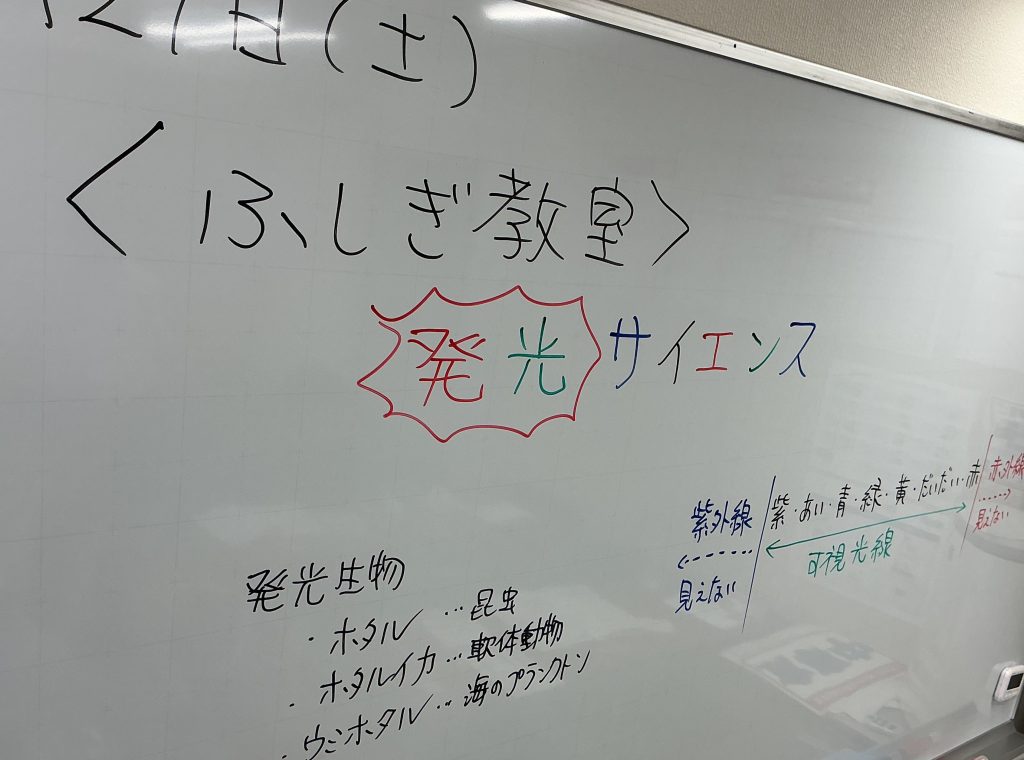 27日(土)
<ふしぎ教室>
発光サイエンス
紫外線
見えない
紫・あい・青・緑・黄・だいだい・赤
可視光線
赤外線
見えない
発光生物
・ホタル…昆虫
・ホタルイカ…軟体動物
・ウミホタル…海のプランクトン